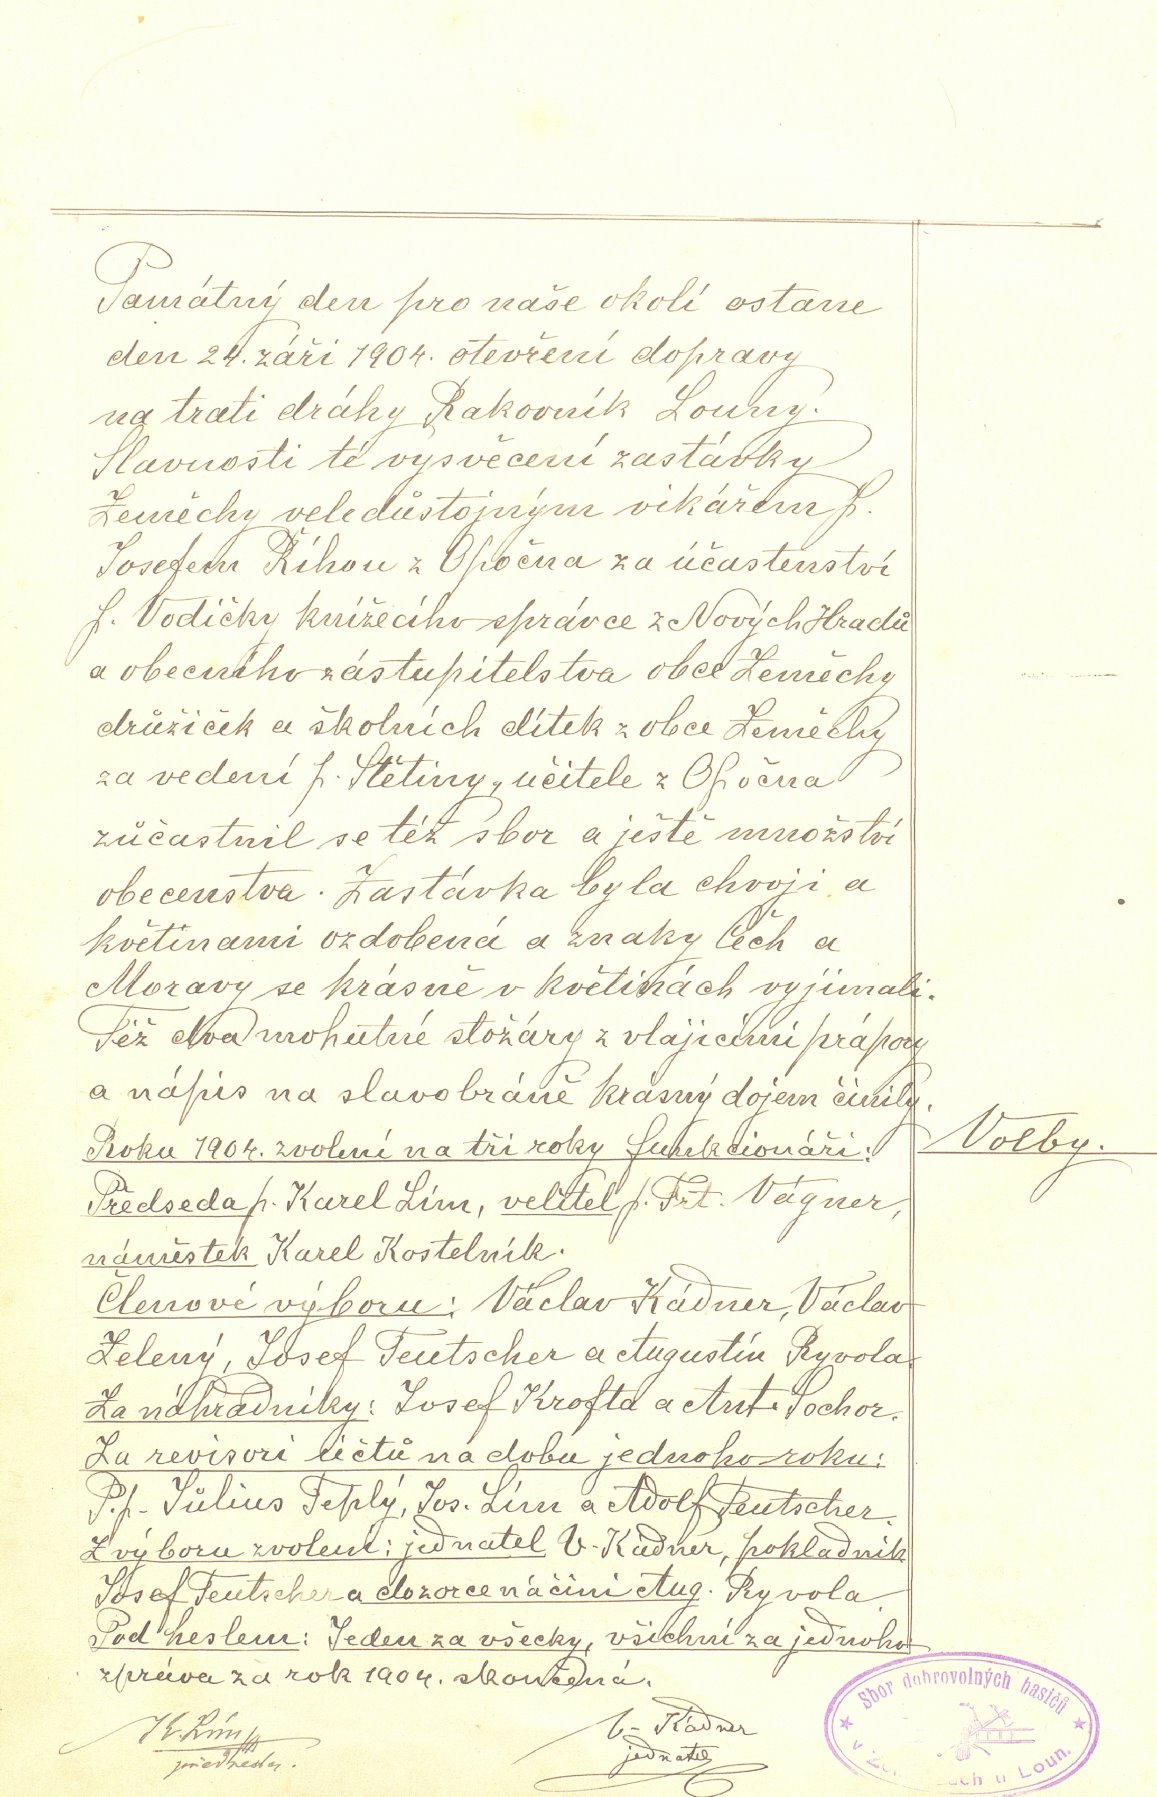 Památný den pro naše okolí ostane
den 24. září 1904. otevření dopravy
na trati dráhy Rakovník Louny.
Slavnosti té vysvěcení zastávky
Zeměchy veledůstojným vikářem p.
Josefem Říhou z Opočna za účastenství
p. Vodičky knížecího správce z Nových Hradů
a obecního zástupitelstva obce Zeměchy
družiček a školních dítek z obce Zeměchy
za vedení p. Štětiny, učitele z Opočna
zůčastnil se též sbor a ještě množství
obecenstva. Zastávka byla chvoji a
květinami ozdobená a znaky Čěch a
Moravy se krásně v květinách vyjímali.
Též dva mohutné stožáry z vlajícími prápory
a nápis na slavobráně krásný dojem činily.
Roku 1904. zvolení na tři roky funkcionáři:
Volby.
Předseda p. Karel Lím, velitel p. Frt. Vágner,
náměstek Karel Kostelník.
Členové výboru: Václav Kádner, Václav
Zelený, Josef Teutscher a Augustín Ryvola.
Za náhradníky: Josef Krofta a Ant. Sochor.
Za revisori účtů na dobu jednoho roku:
P.p. Július Teplý, Jos. Lím a Adolf Teutscher.
Z výboru zvolení: jednatel V. Kádner, pokladník
Josef Teutscher a dozorce náčiní Aug. Ryvola.
Pod heslem: Jeden za všecky, všichni za jednoho
zpráva za rok 1904. skončená.
K. Lím
předseda.
V. Kádner
jednatel
Sbor dobrovolných hasičů
v Zeměchách u Loun.